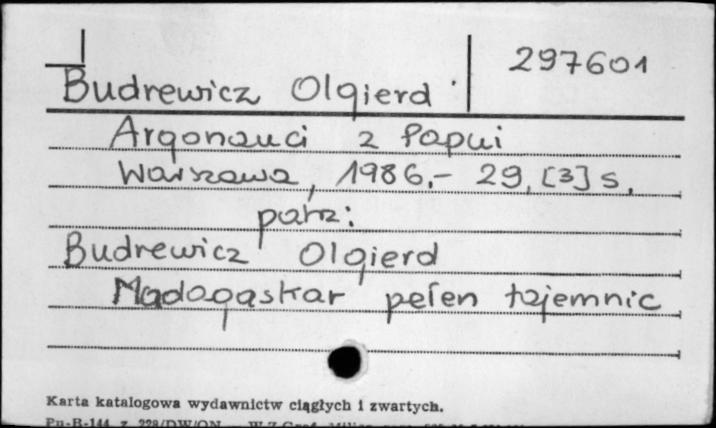 297601
Budrewicz Olgierd
Argonauci z Papui
Warszawa, 1986.- 29, [3] s.
patrz:
Budrewicz Olgierd
Madagaskar pełen tajemnic
Karta katalogowa wydawnictw ciągłych i zwartych.
Pu-B-144 z. 228/DW/ON